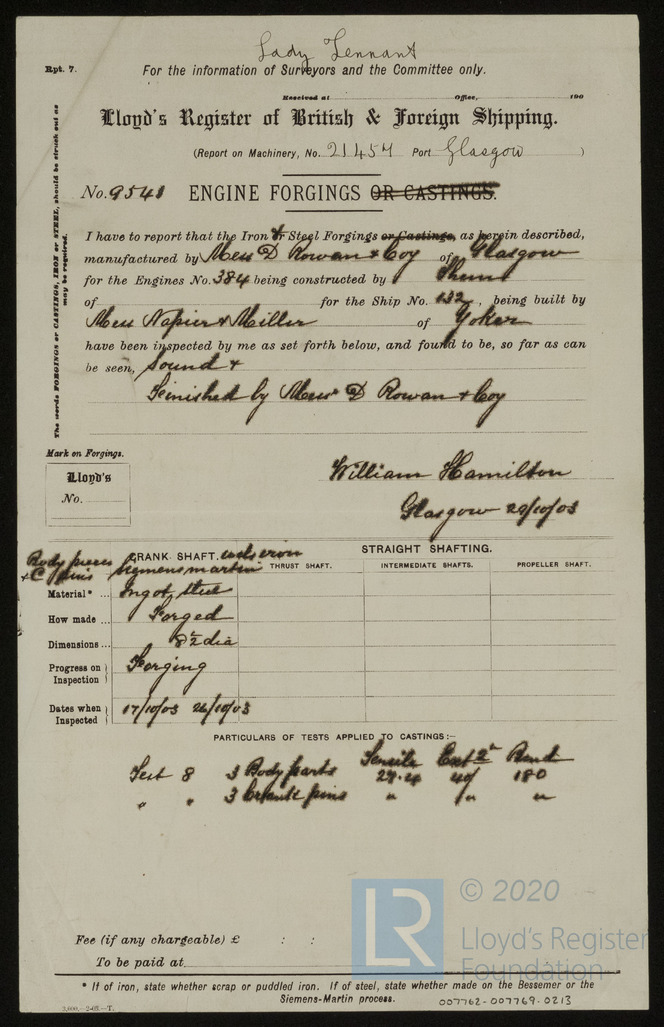 Lady Tennant
Rpt. 7.
For the information of Surveyors and the Committee only.
Received at Office, 190
Lloyd's Register of British & Foreign Shipping.
(Report on Machinery, No. 21454 Port Glasgow )
No. 9541 ENGINE FORGINGS OR CASTINGS.
The words FORGINGS or CASTINGS, IRON or STEEL, should be struck out as
may be required.
I have to report that the Iron or Steel Forgings or Castings, as herein described,
manufactured by Mess D Rowan & Coy of Glasgow
for the Engines No. 384 being constructed by Them
of for the Ship No. 132, being built by
Mess Napier & Miller of Yoker
have been inspected by me as set forth below, and found to be, so far as can
be seen, Sound &
Finished by Mess D Rowan & Coy
Mark on Forgings.
Lloyd's
No.
William Hamilton
Glasgow
CRANK SHAFT. ends iron STRAIGHT SHAFTING.
Body pieces
& C pins Siemens martin THRUST SHAFT. INTERMEDIATE SHAFTS. PROPELLER SHAFT.
Material* ... Ingot steel
How made ... Forged
Dimensions ... dia
Progress on
Inspection Forging
Dates when
Inspected 17/10/03 26/10/03
PARTICULARS OF TESTS APPLIED TO CASTINGS:—
Tensile Ext 2" Bend
Test 8 3 Body parts 29.4 40 180
" " 3 Crank pins " " "
© 2020
LR
Lloyd's Register
Foundation
Fee (if any chargeable) £ : :
To be paid at
* If of iron, state whether scrap or puddled iron. If of steel, state whether made on the Bessemer or the
Siemens-Martin process.
2,000.—2-03.—T.
007762-007769-0213